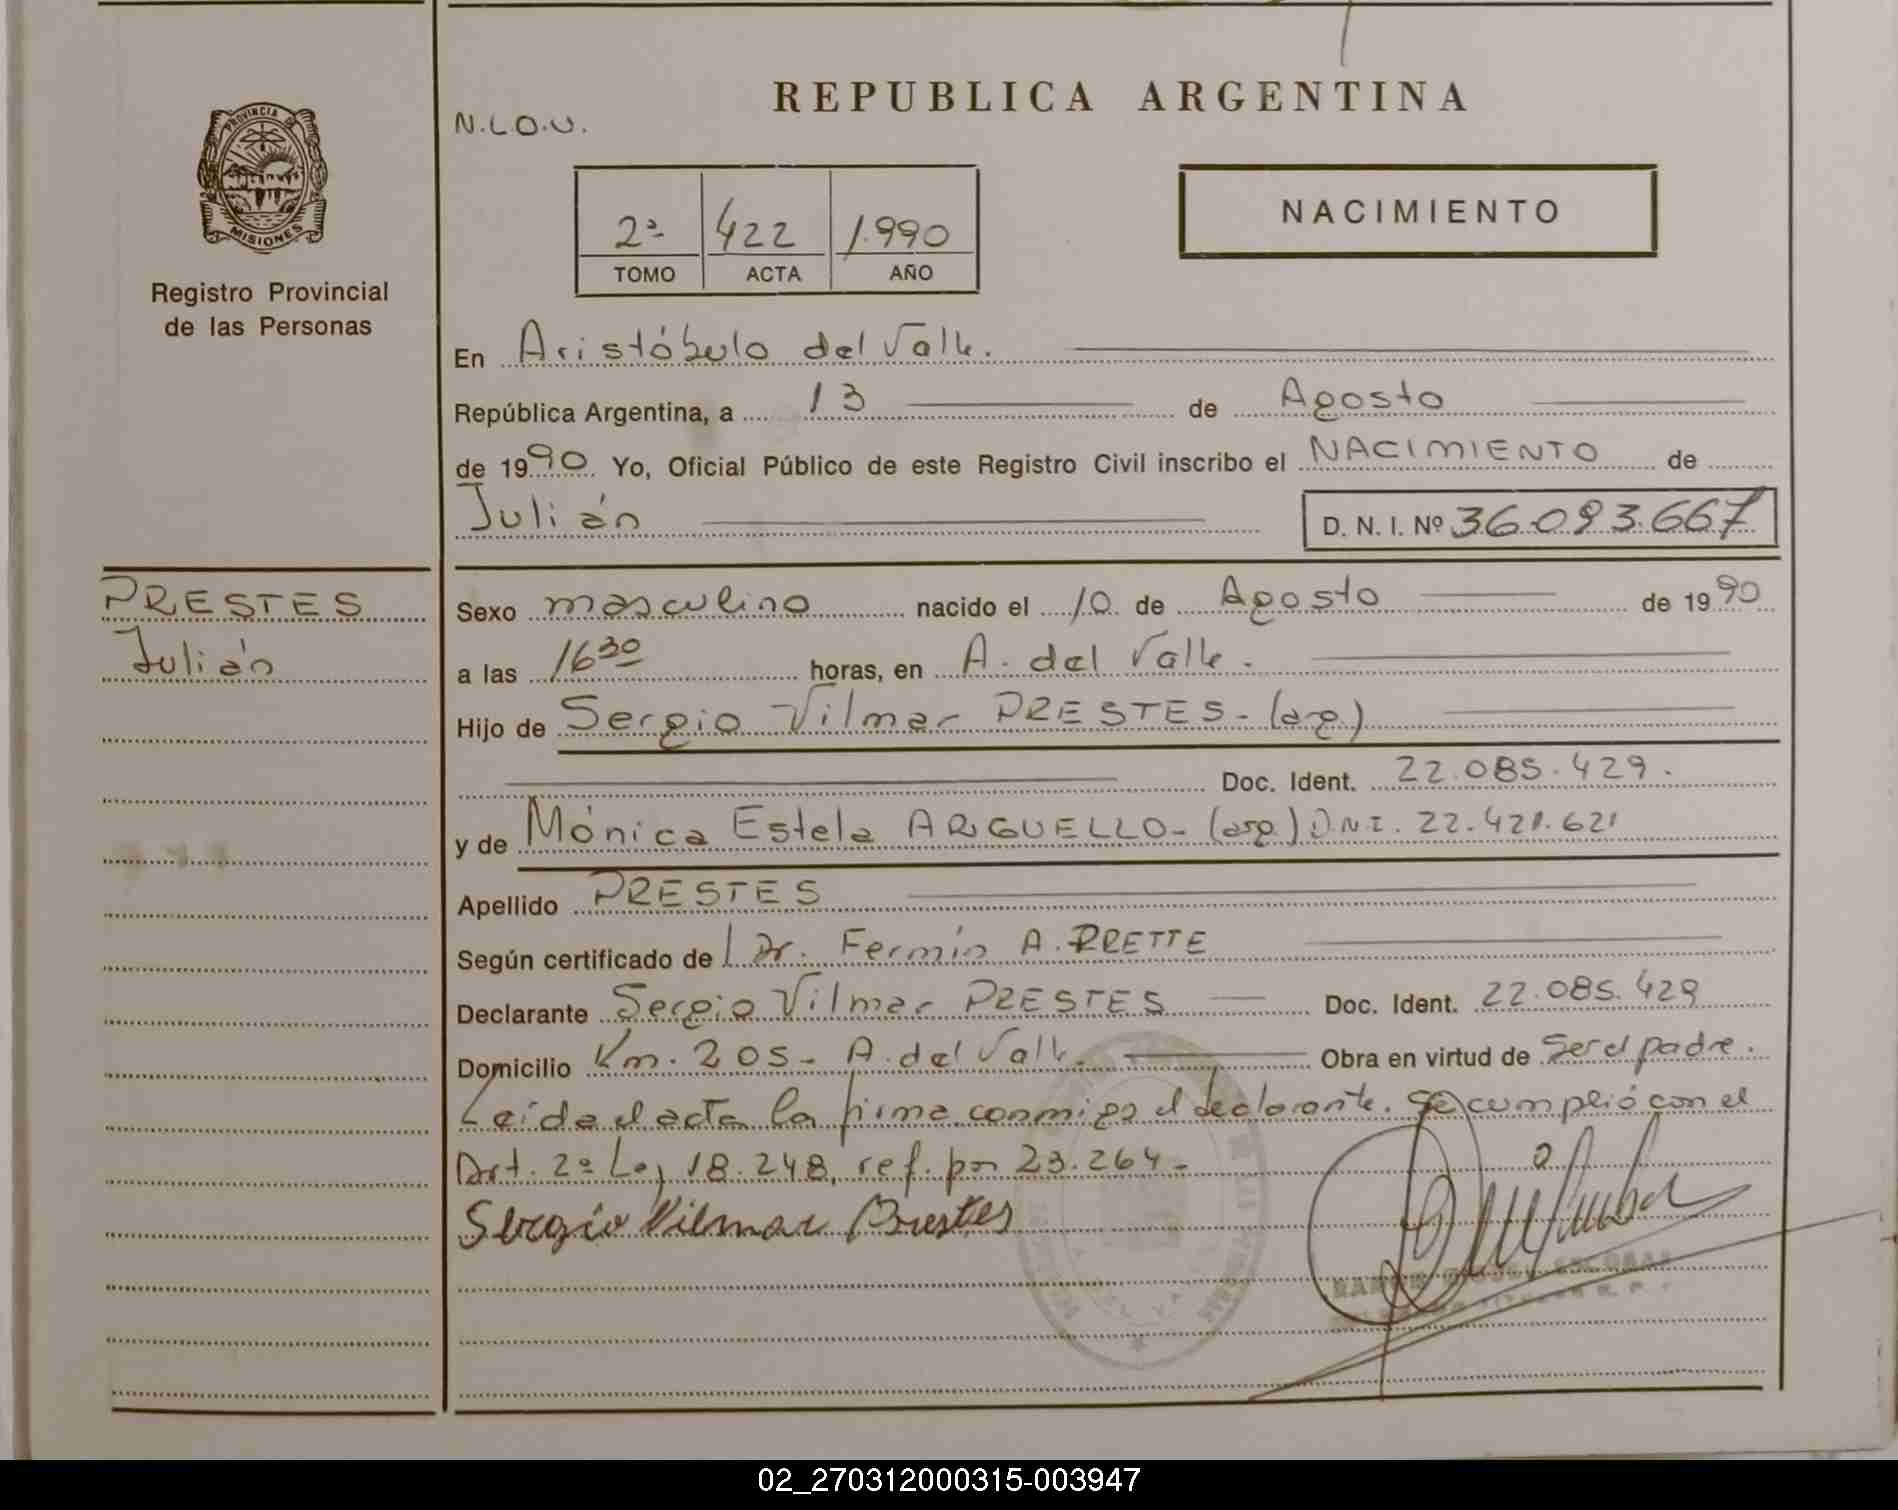 REPUBLICA ARGENTINA
N.L.O.U.
PROVINCIA DE
MISIONES
Registro Provincial
de las Personas
2ª 422 1.990
TOMO ACTA AÑO
NACIMIENTO
En Aristóbulo del Valle.
República Argentina, a 13 de Agosto
de 1990. Yo, Oficial Público de este Registro Civil inscribo el NACIMIENTO de
Julián D. N. I. Nº 36.093.667
PRESTES
Julián
Sexo masculino nacido el 10 de Agosto de 1990
a las 16³⁰ horas, en A. del Valle.
Hijo de Sergio Vilmar PRESTES - (arg.)
Doc. Ident. 22.085.429.
y de Mónica Estela ARGUELLO - (arg.) D.N.I. 22.421.621
Apellido PRESTES
Según certificado de l Dr. Fermín A. PRETTE
Declarante Sergio Vilmar PRESTES Doc. Ident. 22.085.429
Domicilio Km. 205 - A. del Valle. Obra en virtud de Ser el padre.
Leída el acta la firma conmigo el declarante. Se cumplió con el
Art. 2º Ley 18.248, ref. por 23.264 -
Sergio Vilmar Prestes
02_270312000315-003947